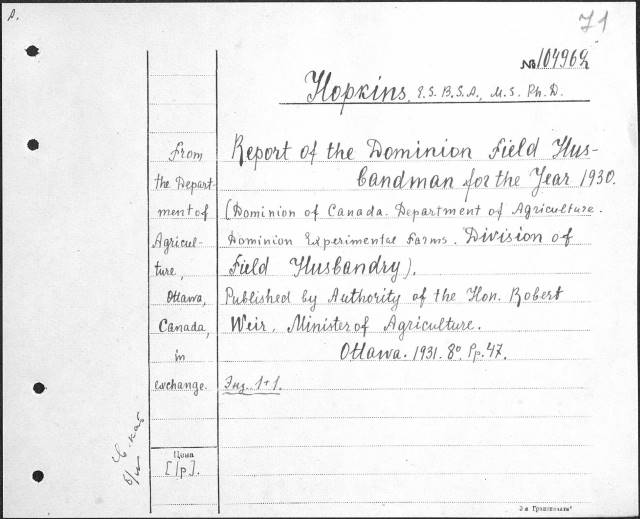 71
№ 104962
Hopkins, E.S. B.S.A., M.S. Ph.D.
From
the Depart-
ment of
Agricul-
ture,
Ottawa,
Canada,
in
exchange.
Report of the Dominion Field Hus-
bandman for the Year 1930.
(Dominion of Canada. Department of Agriculture.
Dominion Experimental Farms. Division of
Field Husbandry).
Published by Authority of the Hon. Robert
Weir, Minister of Agriculture.
Ottawa. 1931. 8º. Pp. 47.
Экз. 1+1.
Цена
[1р].